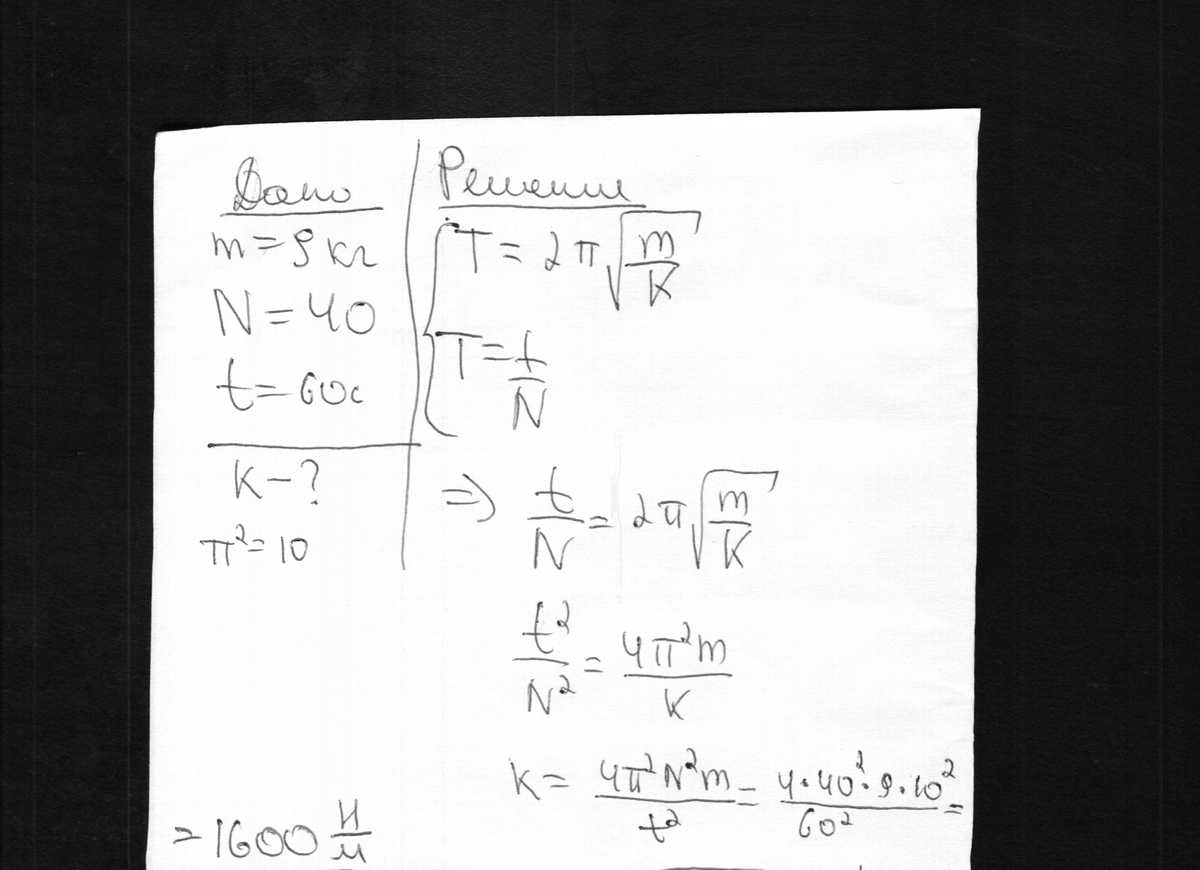 Дано
m = 9 кг
N = 40
t = 60с
K - ?
π² = 10
Решение
T = 2π√(m/K)
T = t/N
⇒ t/N = 2π√(m/K)
t²/N² = 4π²m/K
K = 4π²N²m/t² = 4·40²·9·10²/60² =
= 1600 Н/м